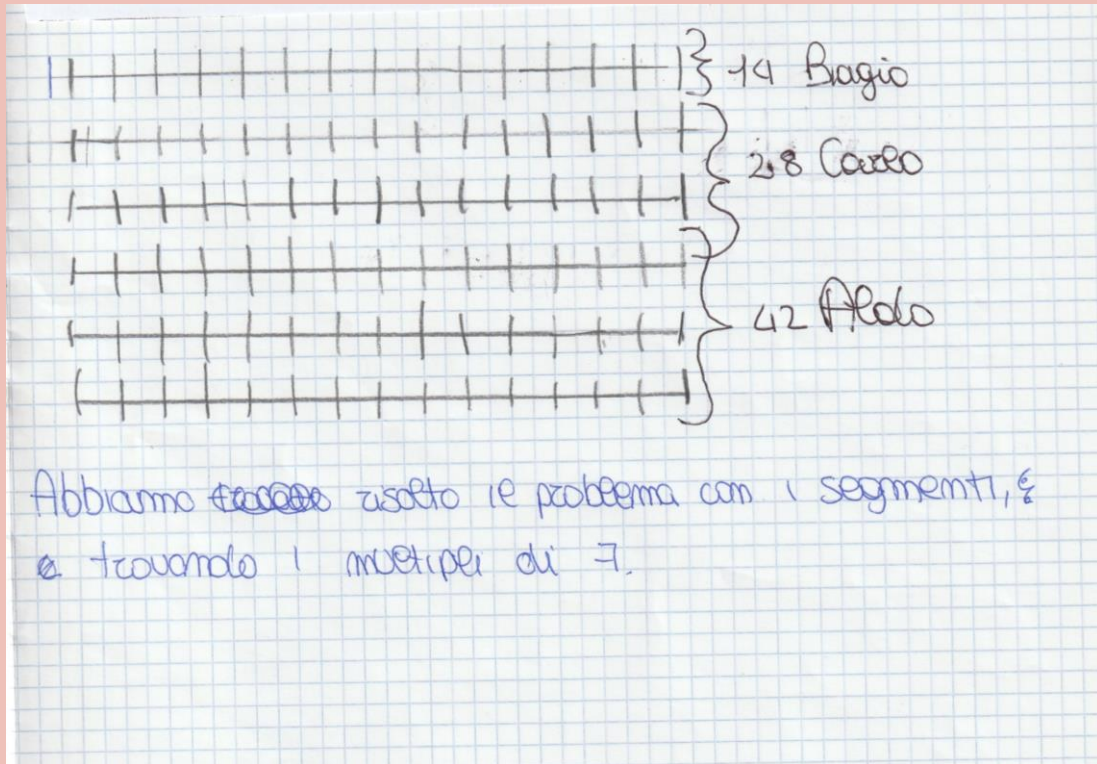 14 Biagio
28 Carlo
42 Aldo
Abbiamo risolto il problema con i segmenti, e
trovando i multipli di 7.